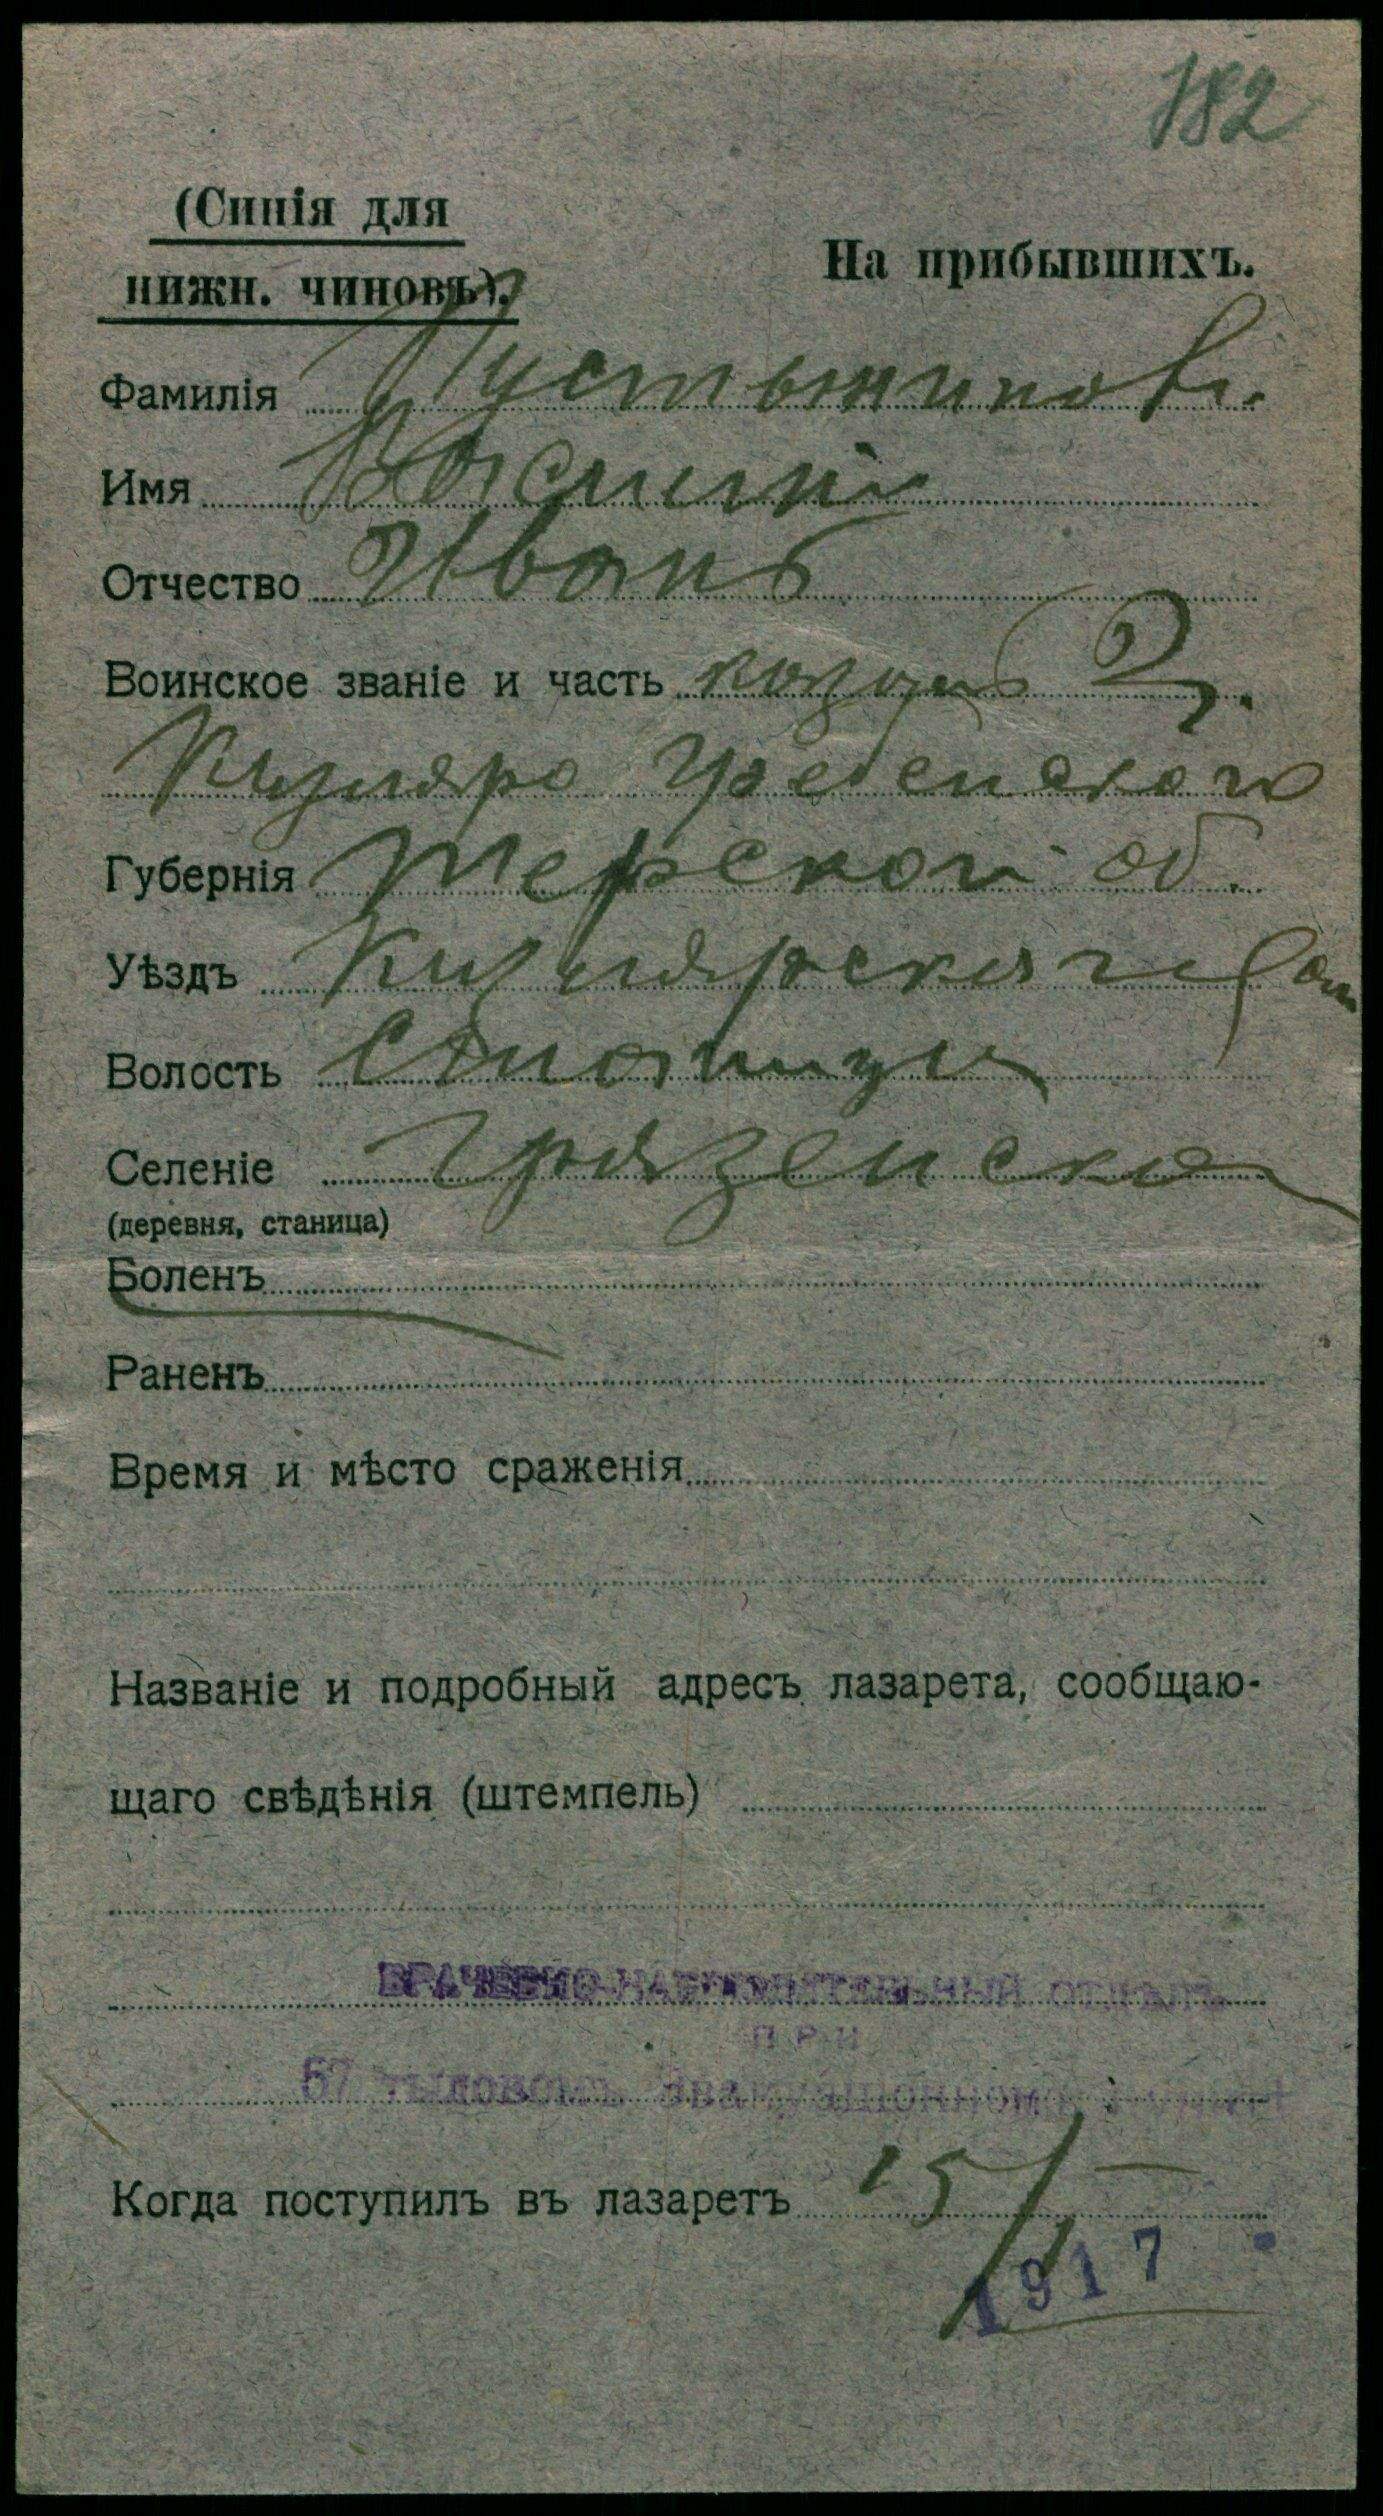 182
(Синія для
На прибывшихъ.
нижн. чиновъ).
Фамилія Пустынниковъ.
Имя Василій
Отчество Иванъ
Воинское званіе и часть козакъ 2
Кизляро Гребенского
Губернія Терской об.
Уѣздъ Кизлярскаго
Волость Станицы
Селеніе
(деревня, станица)
Боленъ
Раненъ
Время и мѣсто сраженія
Названіе и подробный адресъ лазарета, сообщаю-
щаго свѣдѣнія (штемпель)
ВРАЧЕБНО-НАБЛЮДАТЕЛЬНЫЙ ОТДѢЛЪ
ПРИ
57 тыловомъ Эвакуаціонномъ
Когда поступилъ въ лазаретъ 15/I
1917